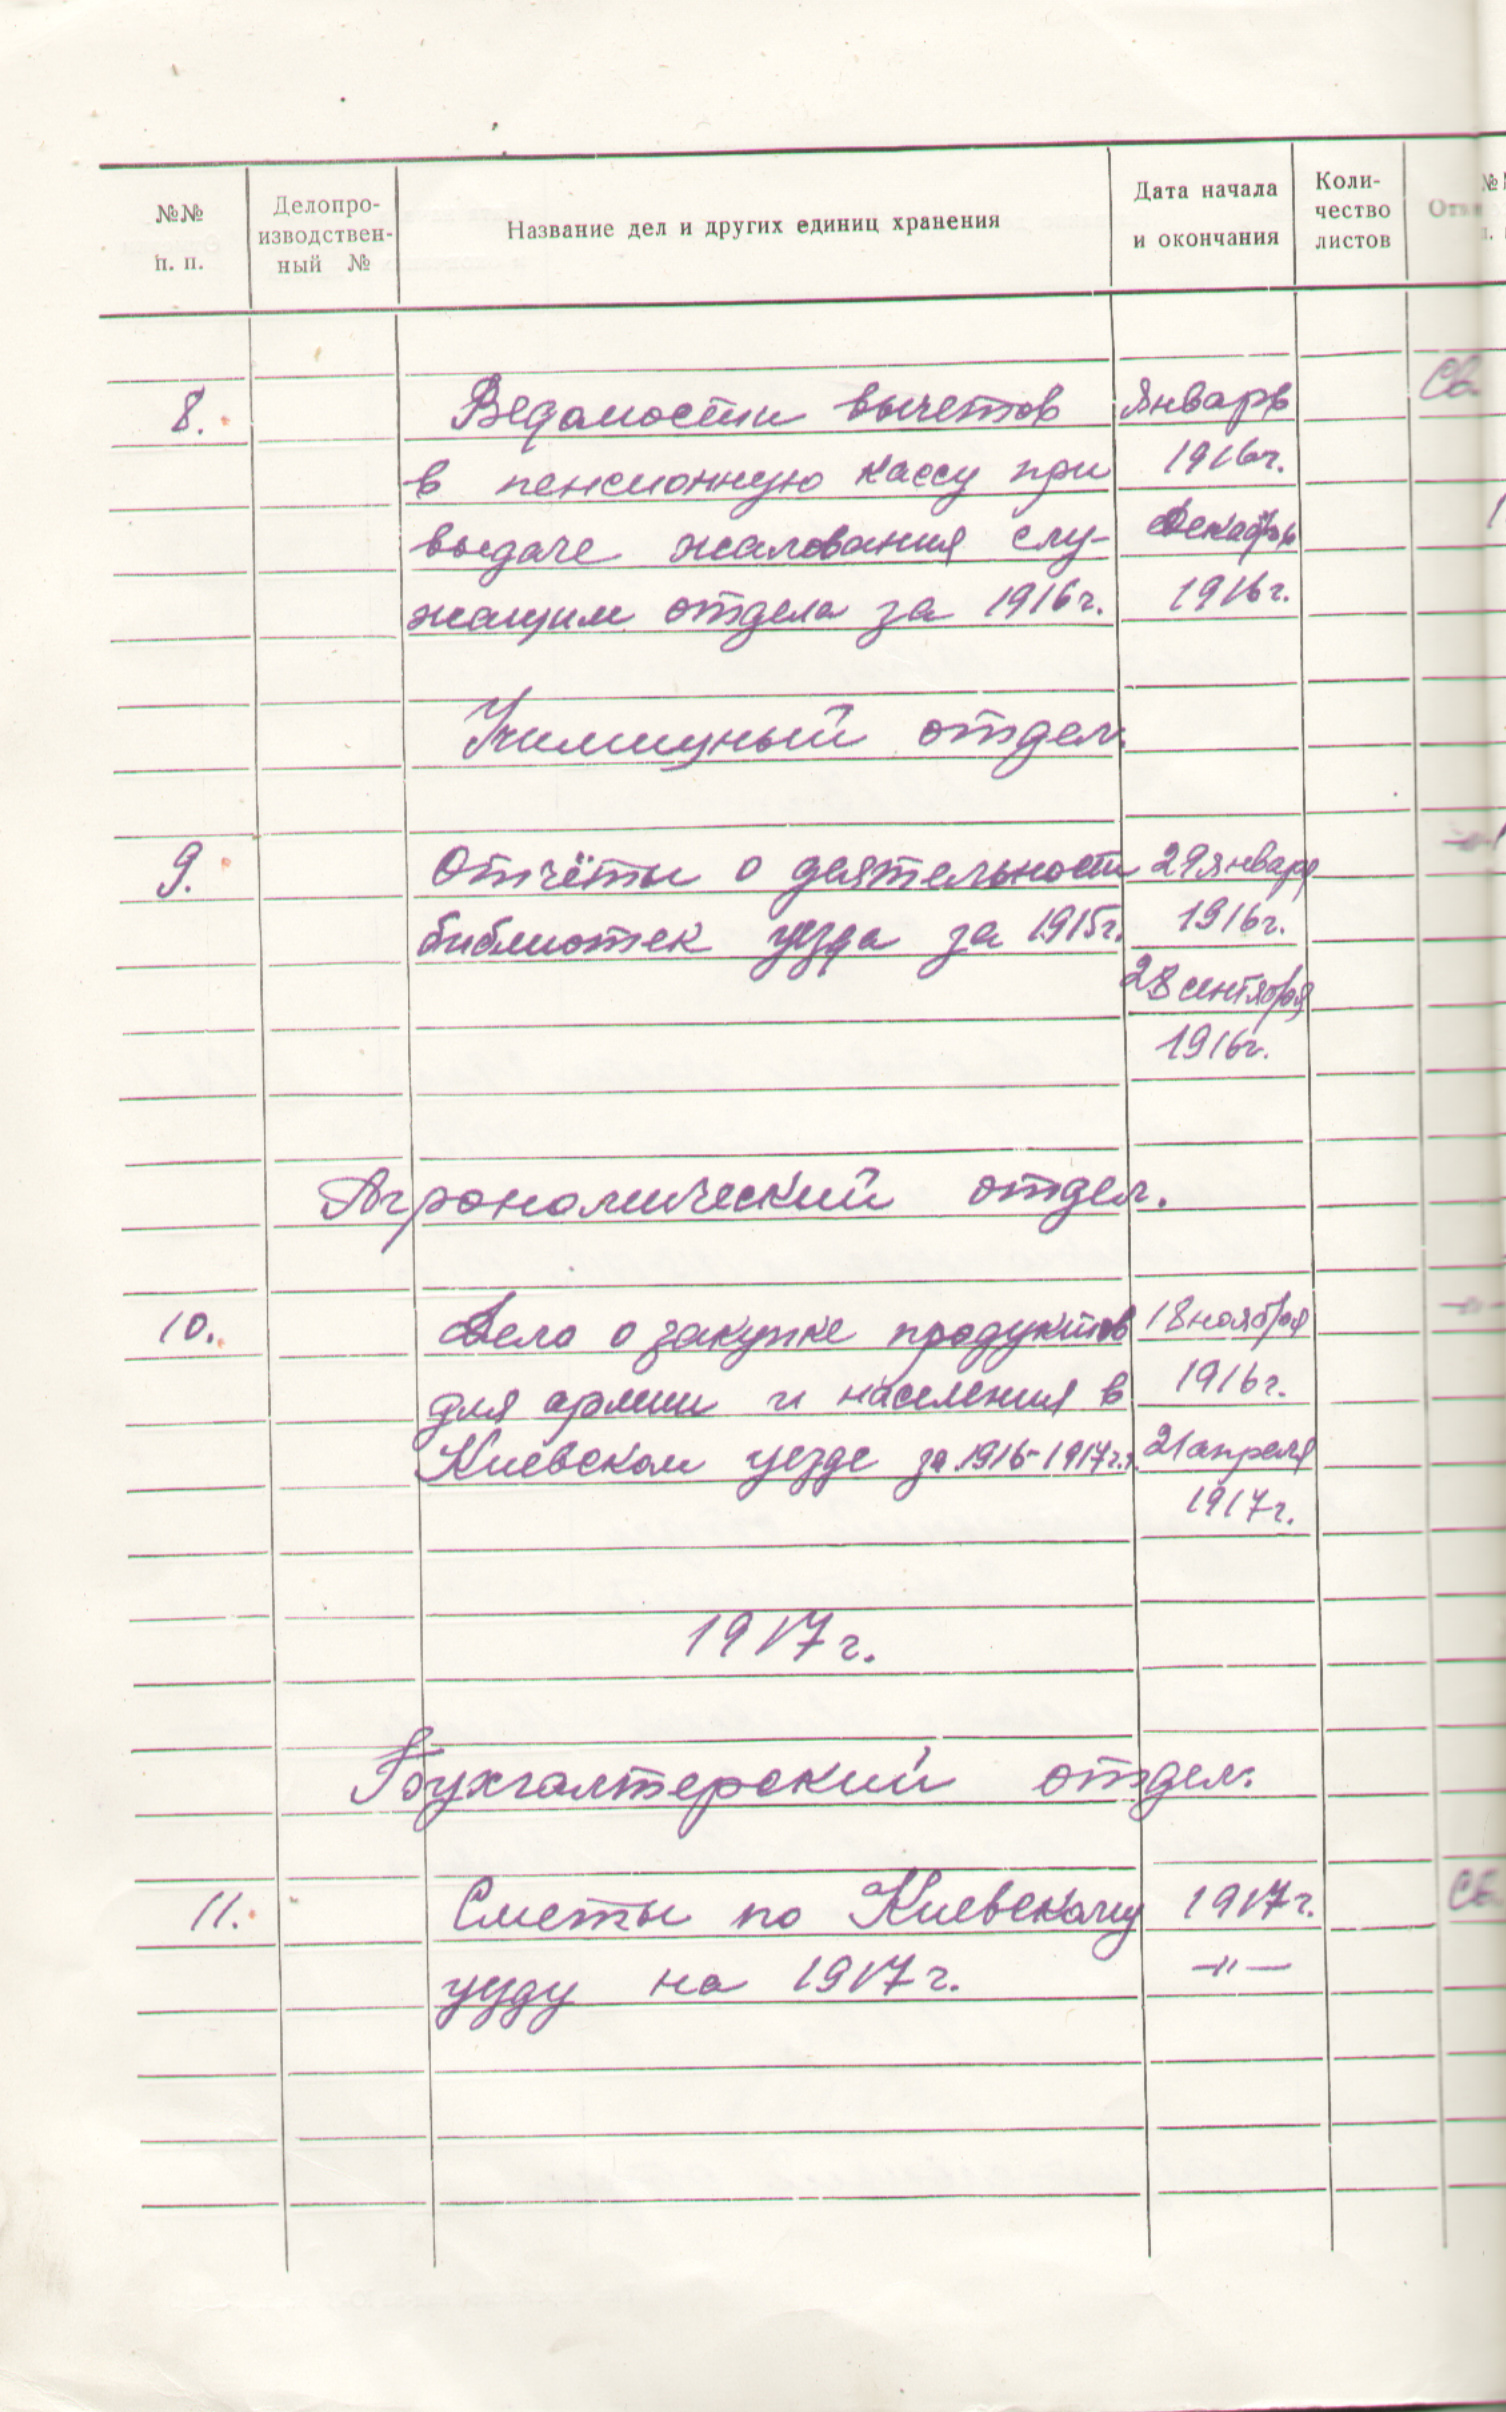 №№ п. п.
Делопро-
изводствен-
ный №
Название дел и других единиц хранения
Дата начала
и окончания
Коли-
чество
листов
8. Ведомости вычетов январь
в пенсионную кассу при 1916г.
выдаче жалования слу- декабрь
жащим отдела за 1916г. 1916г.
Училищный отдел.
9. Отчёты о деятельности 29 января
библиотек уезда за 1915г. 1916г.
28 сентября
1916г.
Агрономический отдел.
10. Дело о закупке продуктов 18 ноября
для армии и населения в 1916г.
Киевском уезде за 1916-1917г.г. 21 апреля
1917г.
1917г.
Бухгалтерский отдел.
11. Сметы по Киевскому 1917г.
уезду на 1917г. —"—